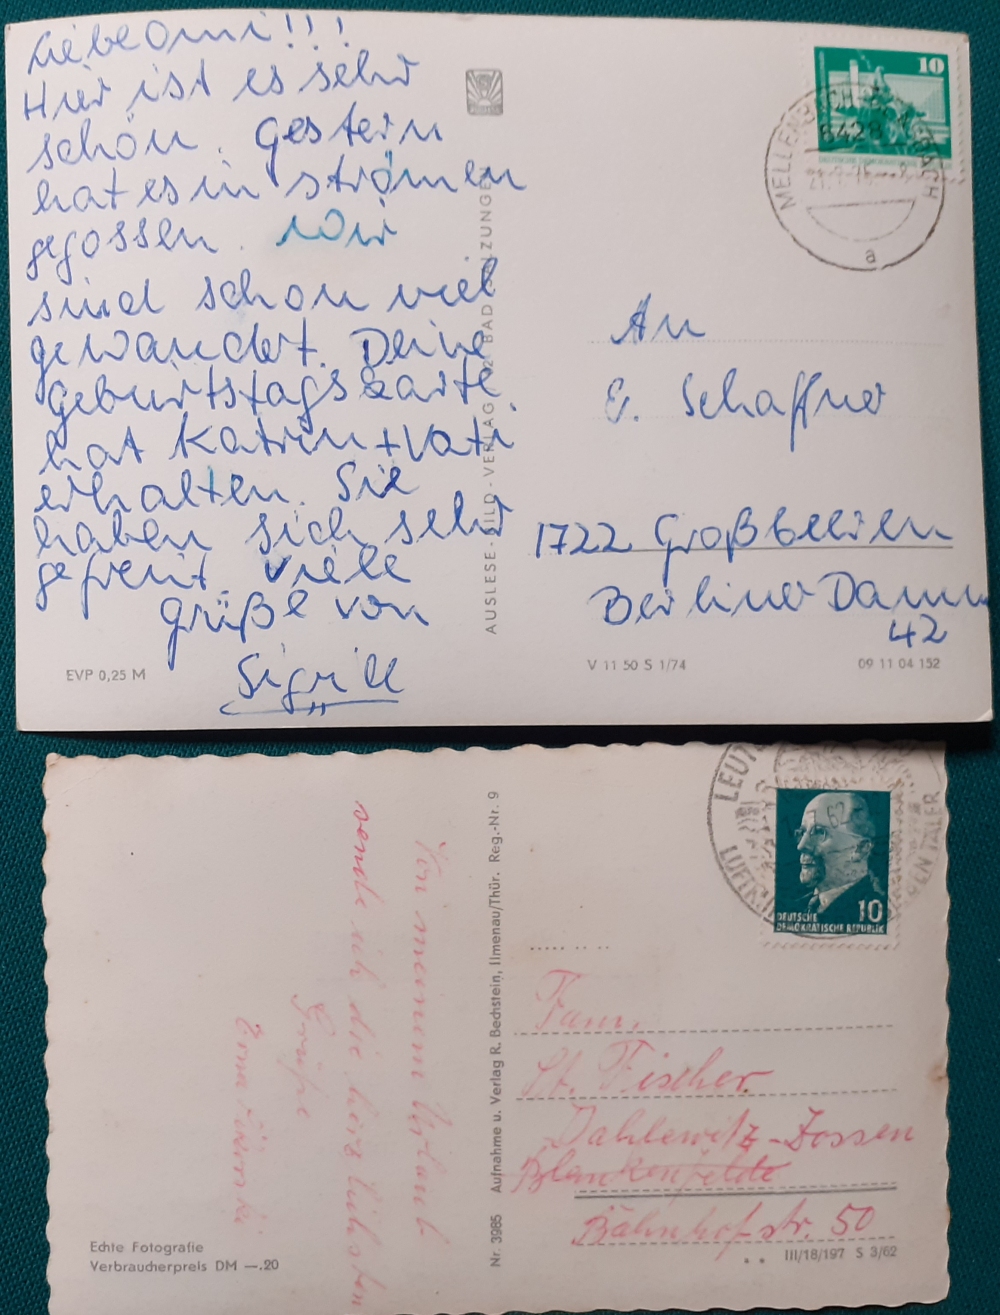 Liebe Omi!!!
Hier ist es sehr
schön. Gestern
hat es in strömen
gegossen. Wir
sind schon viel
gewandert. Deine
Geburtstagskarte
hat Katrin + Vati
erhalten. Sie
haben sich sehr
gefreut. Viele
Grüße von
EVP 0,25 M
AUSLESE-BILD-VERLAG BAD SALZUNGEN
10
DEUTSCHE DEMOKRATISCHE
MELLENBACH
6428
a
An
E. Schaffner
1722 Großbeeren
Berliner Damm
42
V 11 50 S 1/74
09 11 04 152
Von meinem Urlaub
sende ich die herzlichsten
Grüße
Echte Fotografie
Verbraucherpreis DM —.20
Nr. 3985 Aufnahme u. Verlag R. Bechstein, Ilmenau/Thür. Reg.-Nr. 9
10
DEUTSCHE
DEMOKRATISCHE REPUBLIK
Fam.
St. Fischer
Dahlewitz-Zossen
Blankenfelde
Bahnhofstr. 50
III/18/197 S 3/62